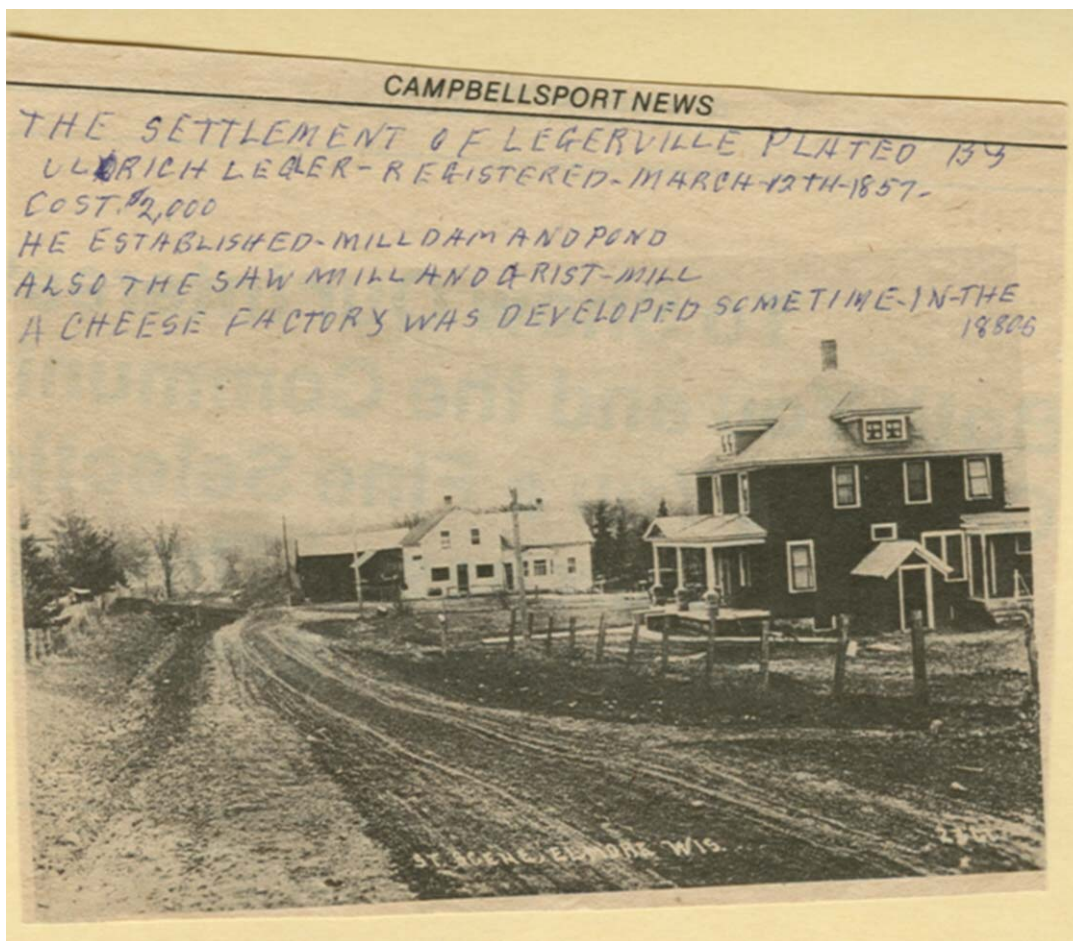 CAMPBELLSPORT NEWS
THE SETTLEMENT OF LEGERVILLE PLATED BY
ULRICH LEGLER-REGISTERED-MARCH-12TH-1857-
COST $2,000
HE ESTABLISHED-MILLDAM AND POND
ALSO THE SAW MILL AND GRIST-MILL
A CHEESE FACTORY WAS DEVELOPED SOMETIME-IN-THE
1880S
ST. SCENE, ELMORE WIS.